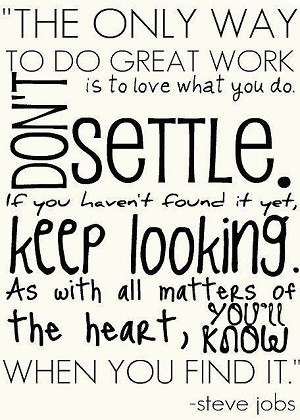 "THE ONLY WAY
TO DO GREAT WORK
is to love what you do.
DON'T
SETTLE.
If you haven't found it yet,
keep looking.
As with all matters of
the heart, YOU'll
KNOW
WHEN YOU FIND IT."
-steve jobs